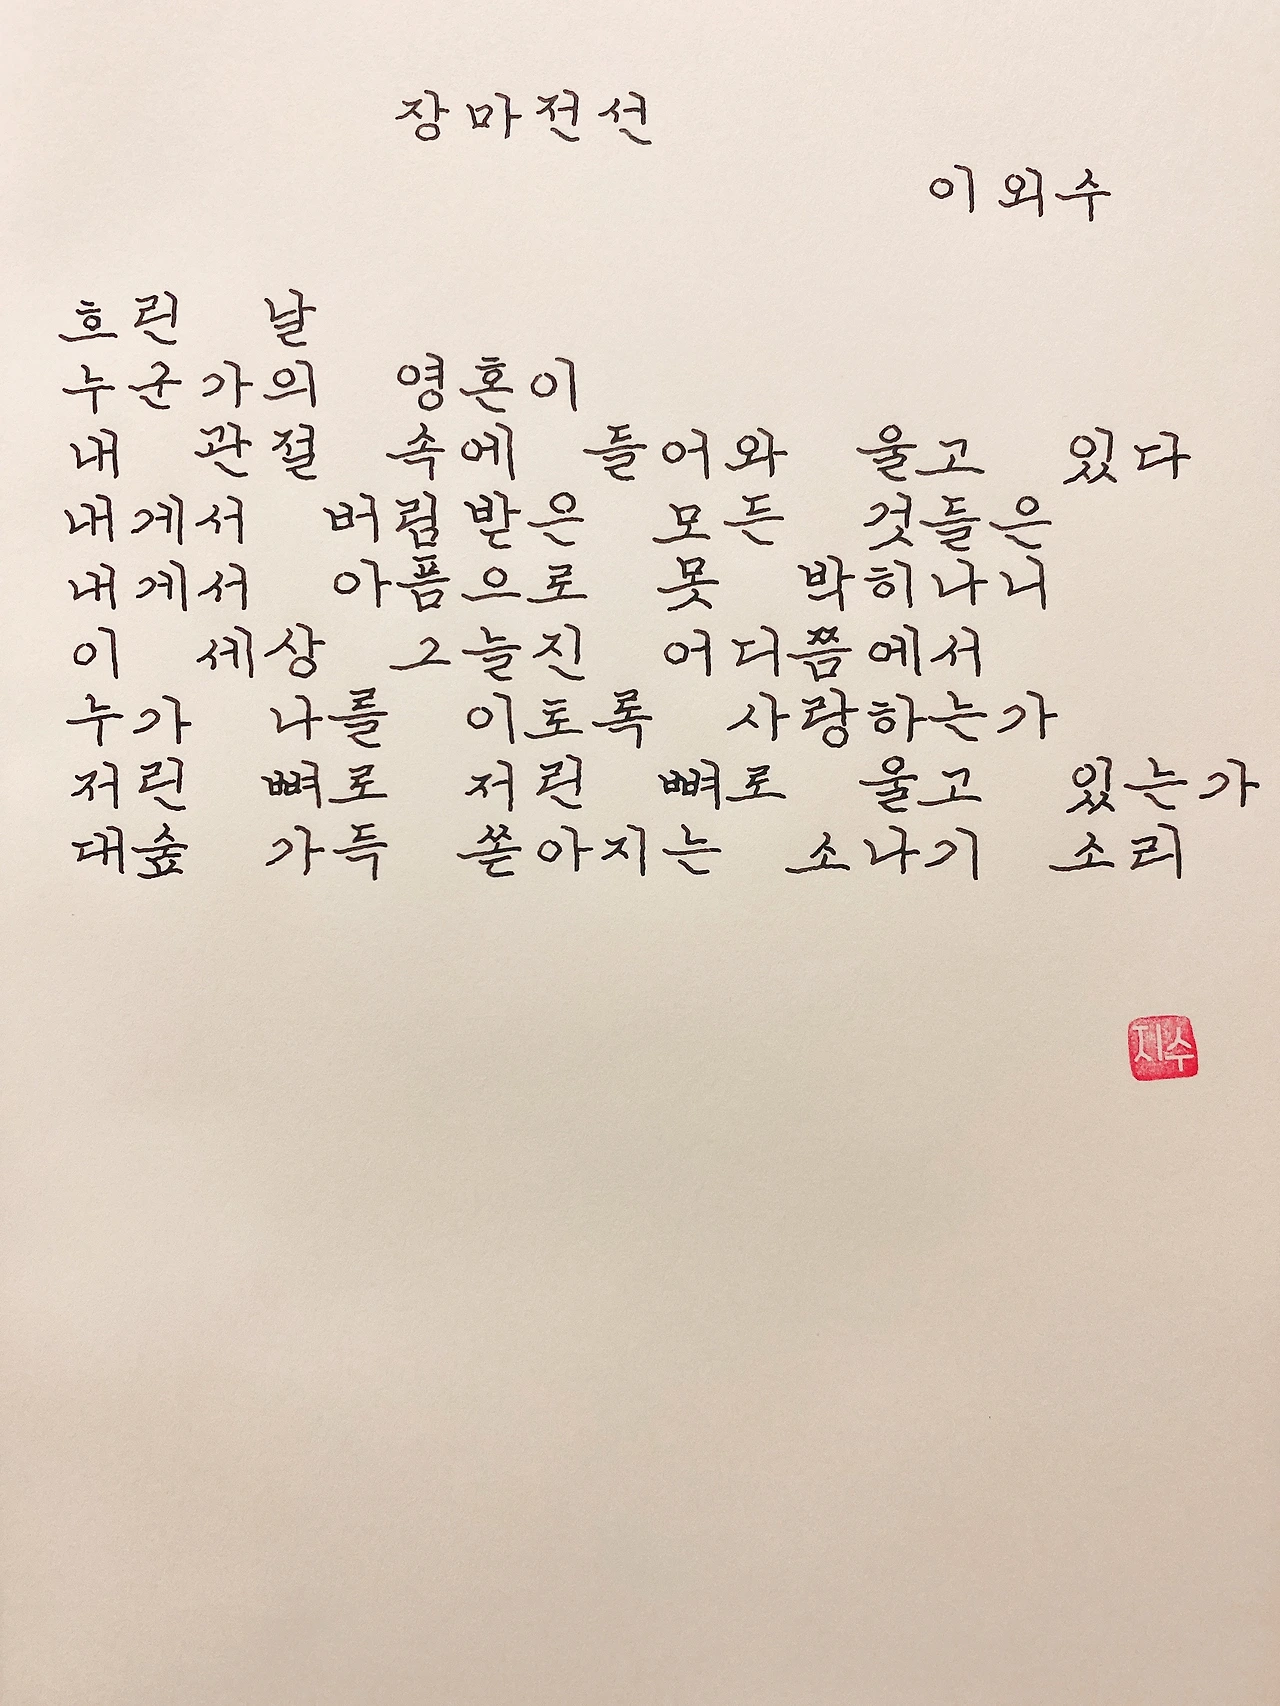 장마전선
이외수
흐린 날
누군가의 영혼이
내 관절 속에 들어와 울고 있다
내게서 버림받은 모든 것들은
내게서 아픔으로 못 박히나니
이 세상 그늘진 어디쯤에서
누가 나를 이토록 사랑하는가
저린 뼈로 저린 뼈로 울고 있는가
대숲 가득 쏟아지는 소나기 소리
지수